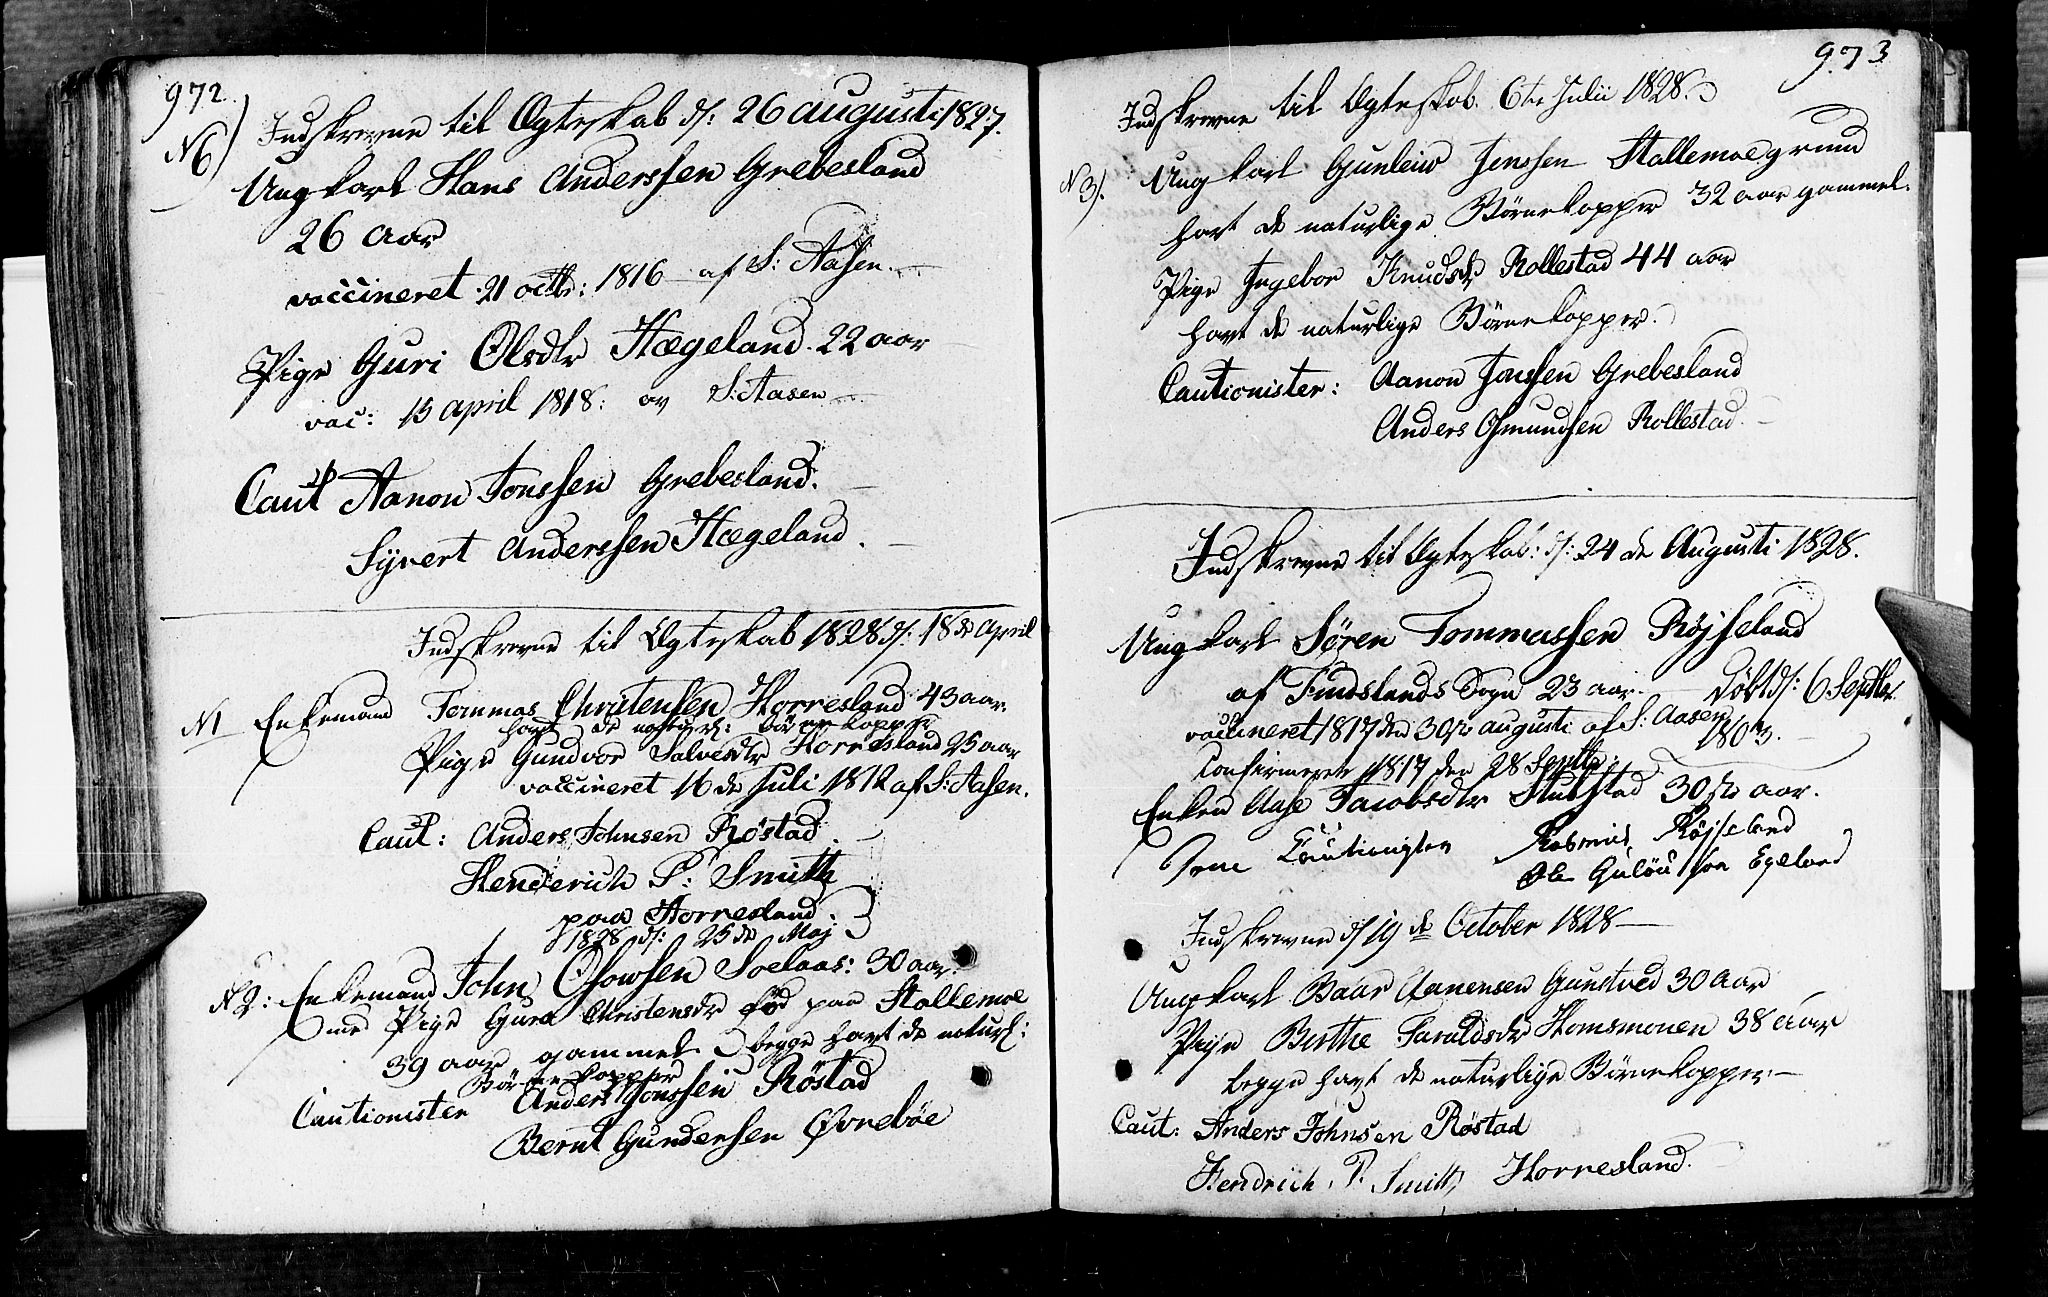 972
N 6) Indskrevne til Ægteskab d/: 26 augusti 1827.
Ungkarl Hans Anderssen Grebesland
26 aar
vaccineret 21 octbr: 1816 af S: Aasen.
Pige Guri Olsdtr Hægeland. 22 aar
vac: 15 april 1818: av S: Aasen
Caut Aanon Jonssen Grebesland.
Syvert Anderssen Hægeland.
Indskrevne til Ægteskab 1828 d/: 18de April
N1 Enkemand Tommas Christensen Horresland 43 aar.
havt de naturl: Börnekopper
Pige Gundvor Salvesdtr Horresland 25 aar
vaccineret 16 de Juli 1812 af S: Aasen.
Caut: Anders Johnsen Röstad.
Henderich P: Smith
paa Horresland.
1828 d/: 25 de Maj
N2: Enkemand John Osowsen Soelaas: 30 aar.
med Pige Gura Christensdtr föd paa Stallemoe
39 aar gammel begge havt de naturl:
Börnekopper
Cautionister Anders Jonssen Röstad
Bernt Gundersen Øvrebøe
973
Indskrevne til Ægteskab. 6te Julii 1828.
N 3/. Ungkarl Gunleiw Jenssen Stallemoegrund
havt de naturlige Börnekopper 32 aar gammel.
Pige Ingebor Knudsdtr Rollestad 44 aar
havt de naturlige Börnekopper.
Cautionister: Aanon Jonssen Grebesland
Anders Osmundsen Rollestad.
Indskrevne til Ægteskab: d/: 24 de Augusti 1828.
Ungkarl Sören Tommassen Röjseland
af Findslands Sogn 23 aar. Döbt d/: 6 Septbr.
vaccineret 1817 den 30te augusti af S: Aasen 1803.
Confirmeret 1817 den 28 Septbr
Enken Aase Jacobsdtr Stubstad 30te aar.
Som Cautionister Rasmus Röjseland
Ole Gulöusson Egeland
Indskrevne d/ 19 de October 1828
Ungkarl Baar Aanensen Gunstved 30 Aar
Pige Birthe Taraldsdr Homsmonen 38 aar
begge havt de naturlige Börnekopper
Caut: Anders Johnsen Röstad
Hendrich P. Smith Horresland.